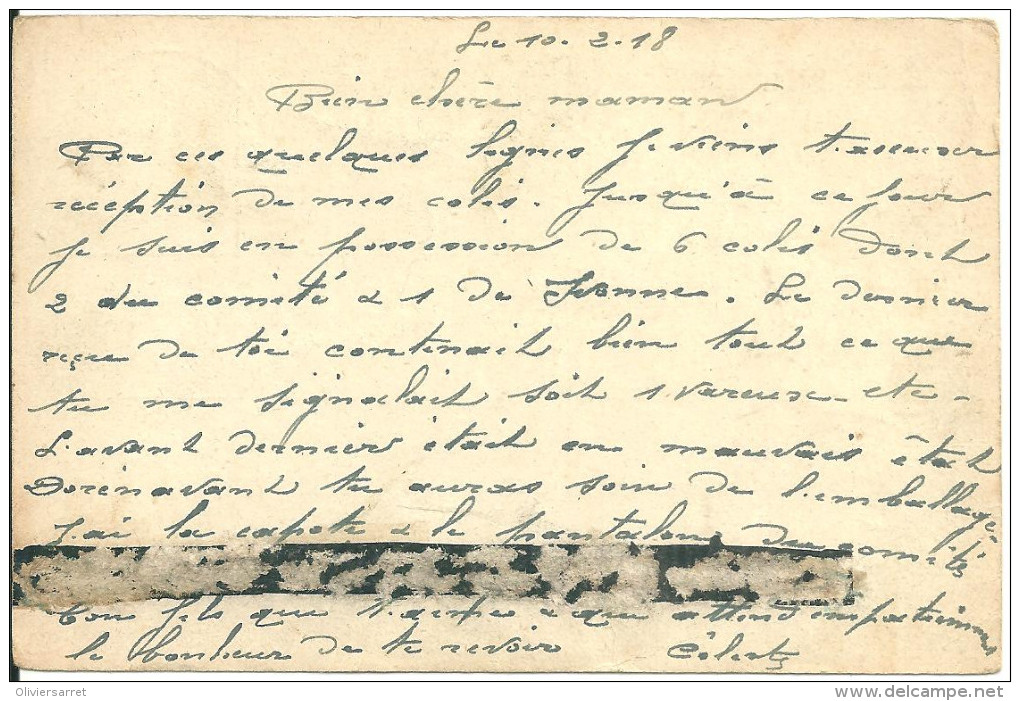 Le 10. 2. 18
Bien chère maman
Par ces quelques lignes je viens t'accuser
réception de mes colis. Jusqu'à ce jour
je suis en possession de 6 colis dont
2 du comité & 1 de Ivonne. Le dernier
reçu de toi contenait bien tout ce que
tu me signalait soit 1 vareuse - etc -
L'avant dernier était en mauvais état
Dorénavant tu auras soin de l'emballage
J'ai la capote & le pantalon du comité
Ton fils que t'aime & que attend impatiemment
le bonheur de te revoir Céleste
Oliviersarret
www.delcampe.net